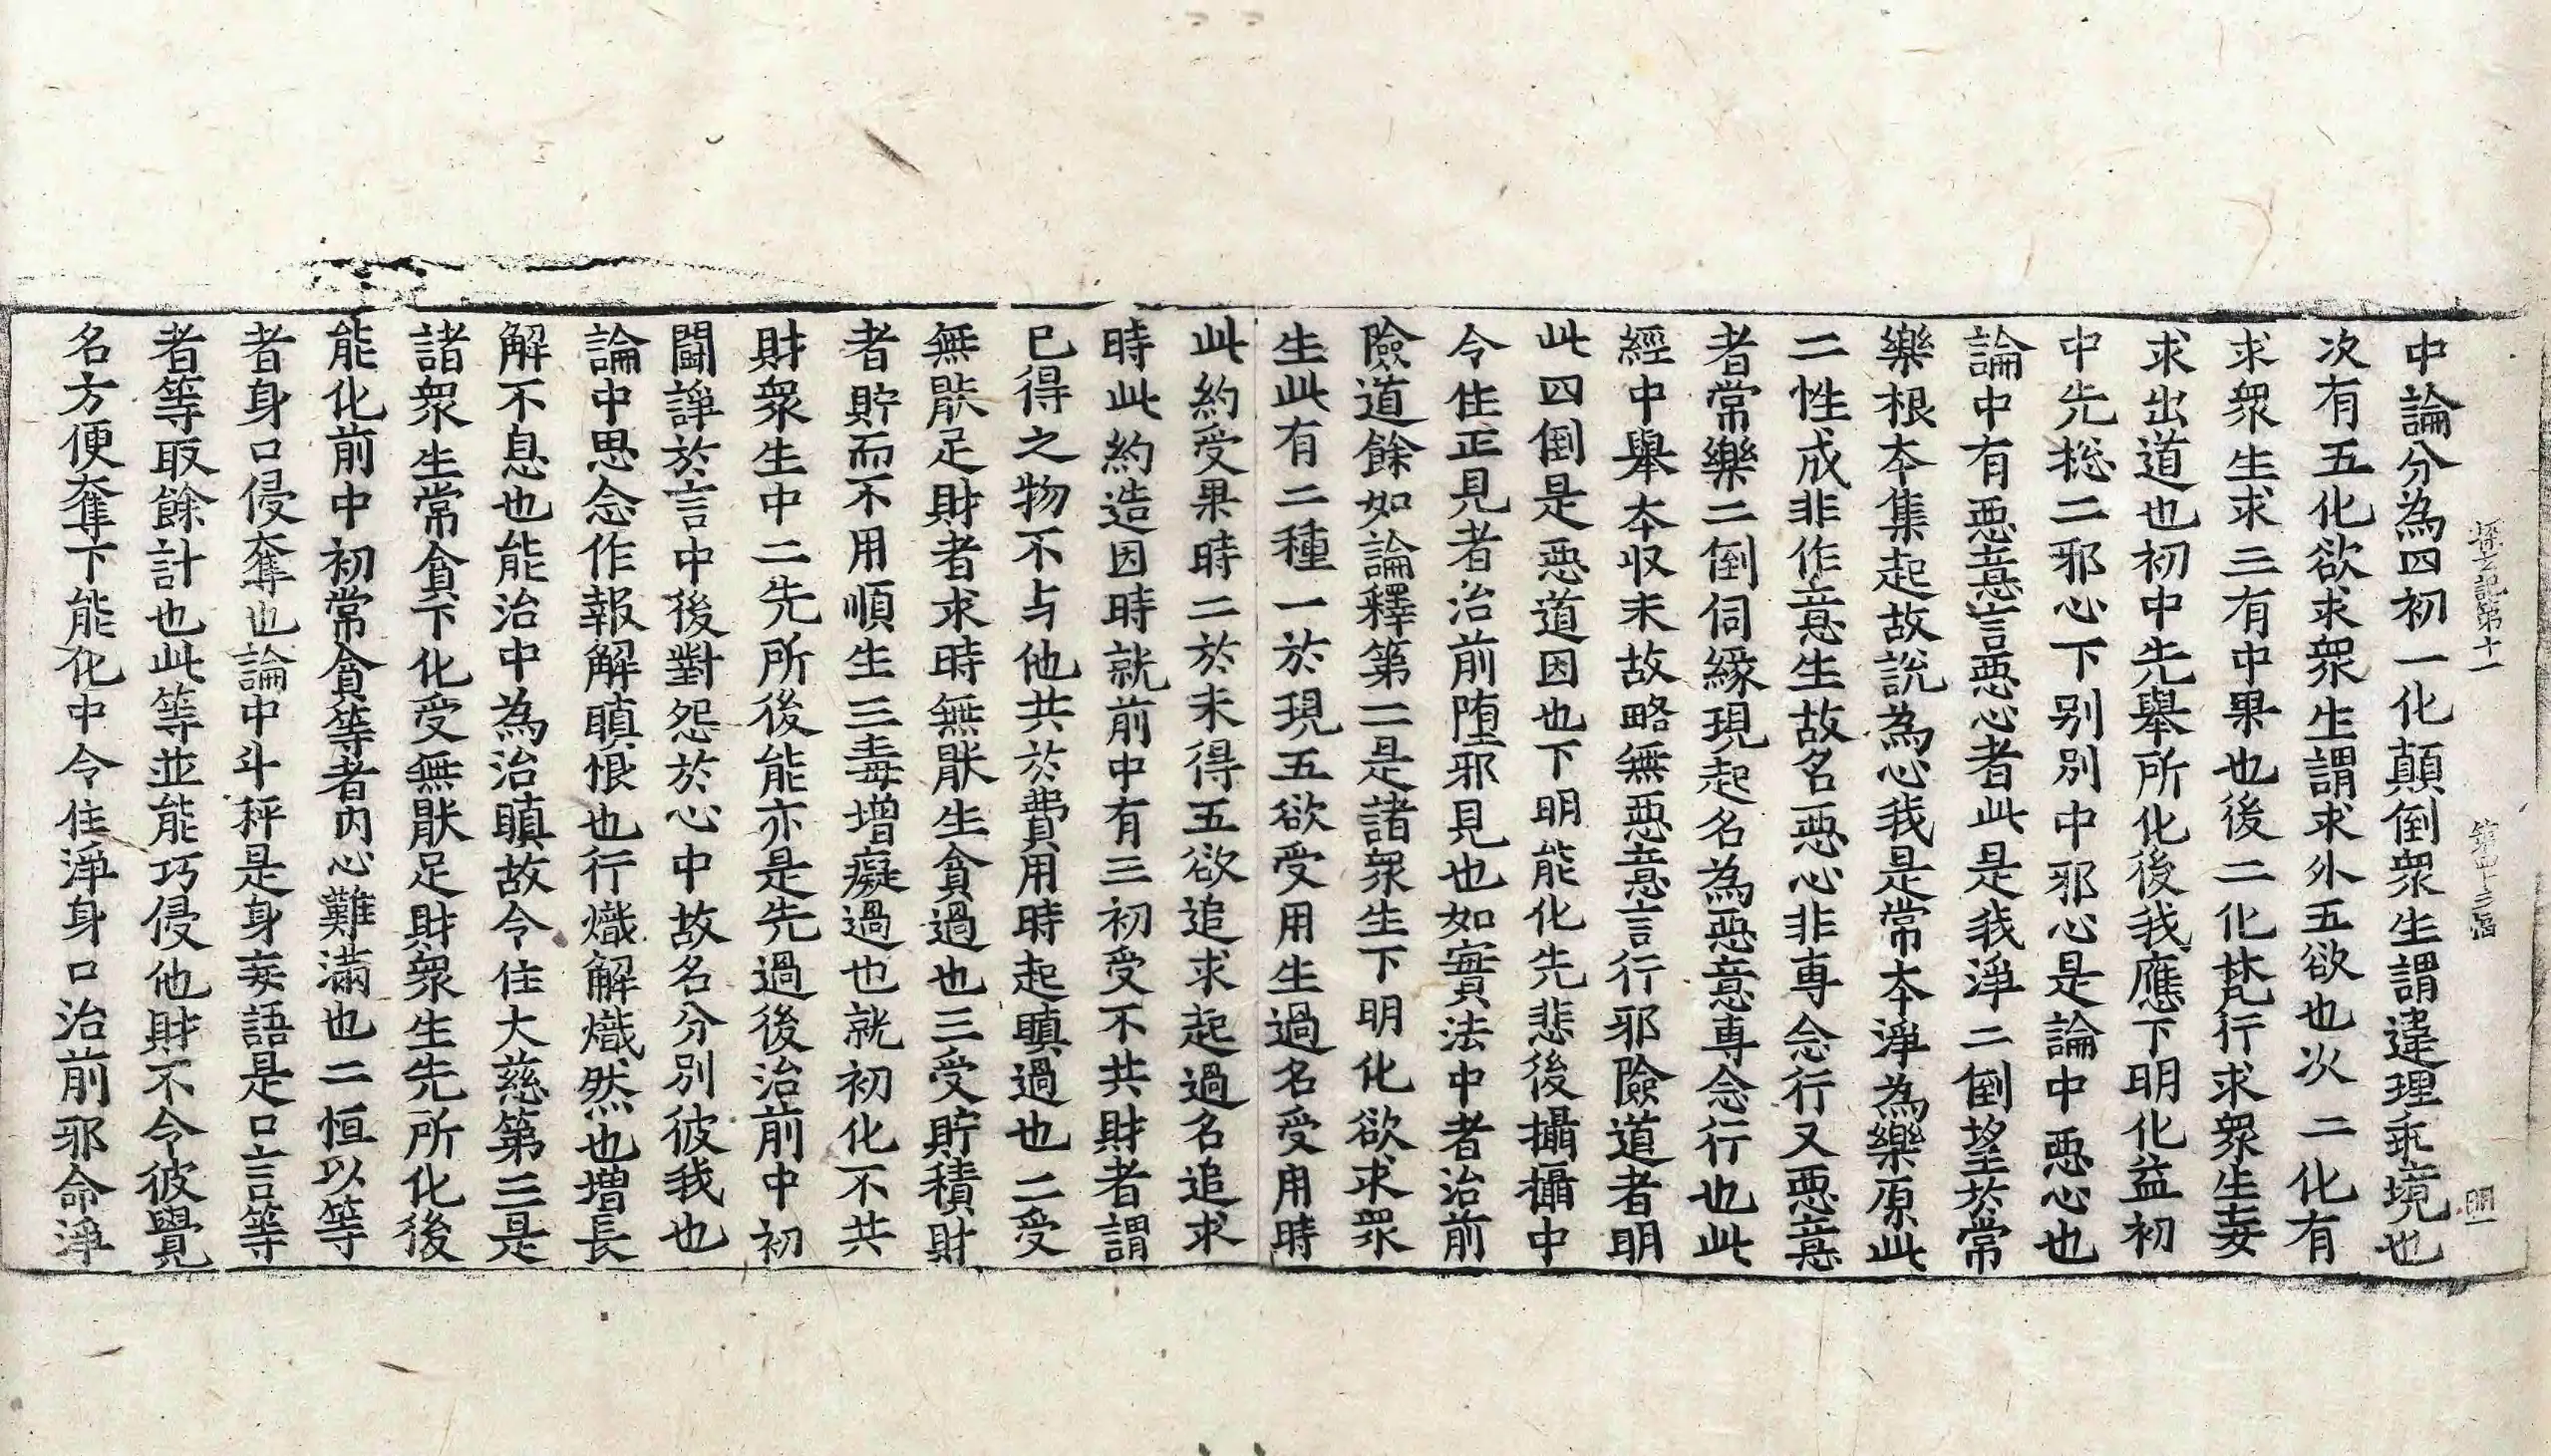 探玄記第十一 第四十三張 明
中論分為四初一化顛倒衆生謂違理乖境也
次有五化欲求衆生謂求外五欲也次二化有
求衆生求三有中果也後二化梵行求衆生妄
求出道也初中先舉所化後我應下明化益初
中先捴二邪心下別別中邪心是論中悪心也
論中有悪意言悪心者此是我淨二倒望於常
樂根本集起故說為心我是常本淨為樂原此
二性成非作意生故名悪心非專念行又悪意
者常樂二倒伺緣現起名為悪意專念行也此
經中舉本収末故略無悪意言行邪險道者明
此四倒是悪道因也下明能化先悲後攝攝中
令住正見者治前堕邪見也如實法中者治前
險道餘如論釋第二是諸衆生下明化欲求衆
生此有二種一於現五欲受用生過名受用時
此約受果時二於未得五欲追求起過名追求
時此約造因時就前中有三初受不共財者謂
已得之物不与他共於費用時起瞋過也二受
無猒足財者求時無猒生貪過也三受貯積財
者貯而不用順生三毒增癡過也就初化不共
財衆生中二先所後能亦是先過後治前中初
闘諍於言中後對怨於心中故名分別彼我也
論中思念作報解瞋恨也行熾解熾然也增長
解不息也能治中為治瞋故令住大慈第三是
諸衆生常貪下化受無猒足財衆生先所化後
能化前中初常貪等者內心難滿也二恒以等
者身口侵奪也論中斗秤是身妄語是口言等
者等取餘計也此等並能巧侵他財不令彼覺
名方便奪下能化中令住淨身口治前邪命淨